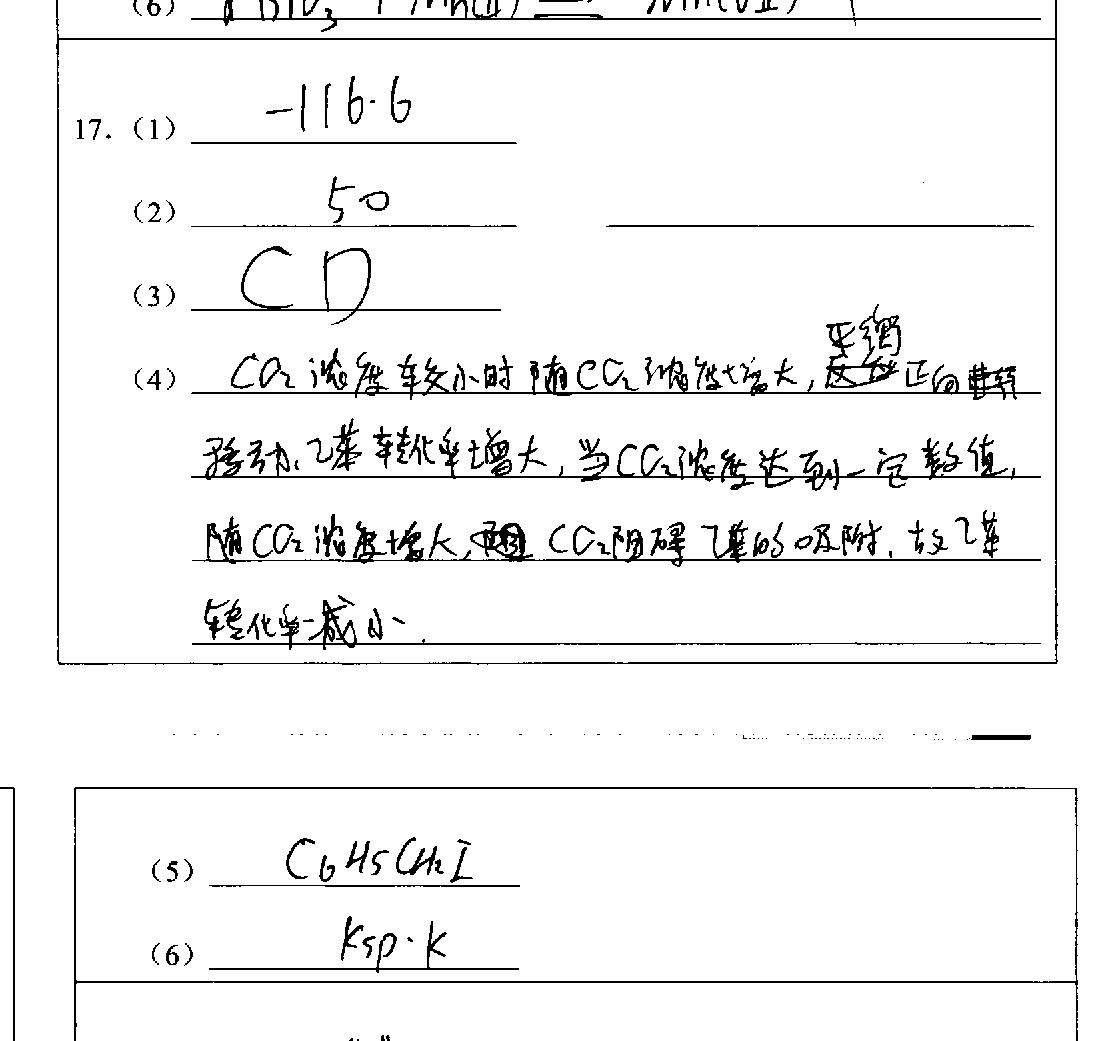 (6)
17. (1) -116.6
(2) 50
(3) CD
平衡
(4) CO₂浓度较小时随CO₂浓度增大, 正向
移动,乙苯转化率增大,当CO₂浓度达到一定数值,
随CO₂浓度增大, CO₂阻碍乙苯的吸附,故乙苯
转化率减小.
(5) C₆H₅CH₂I
(6) Ksp·K